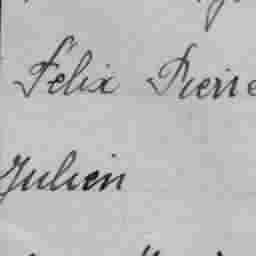 Felix Pierre
Julien